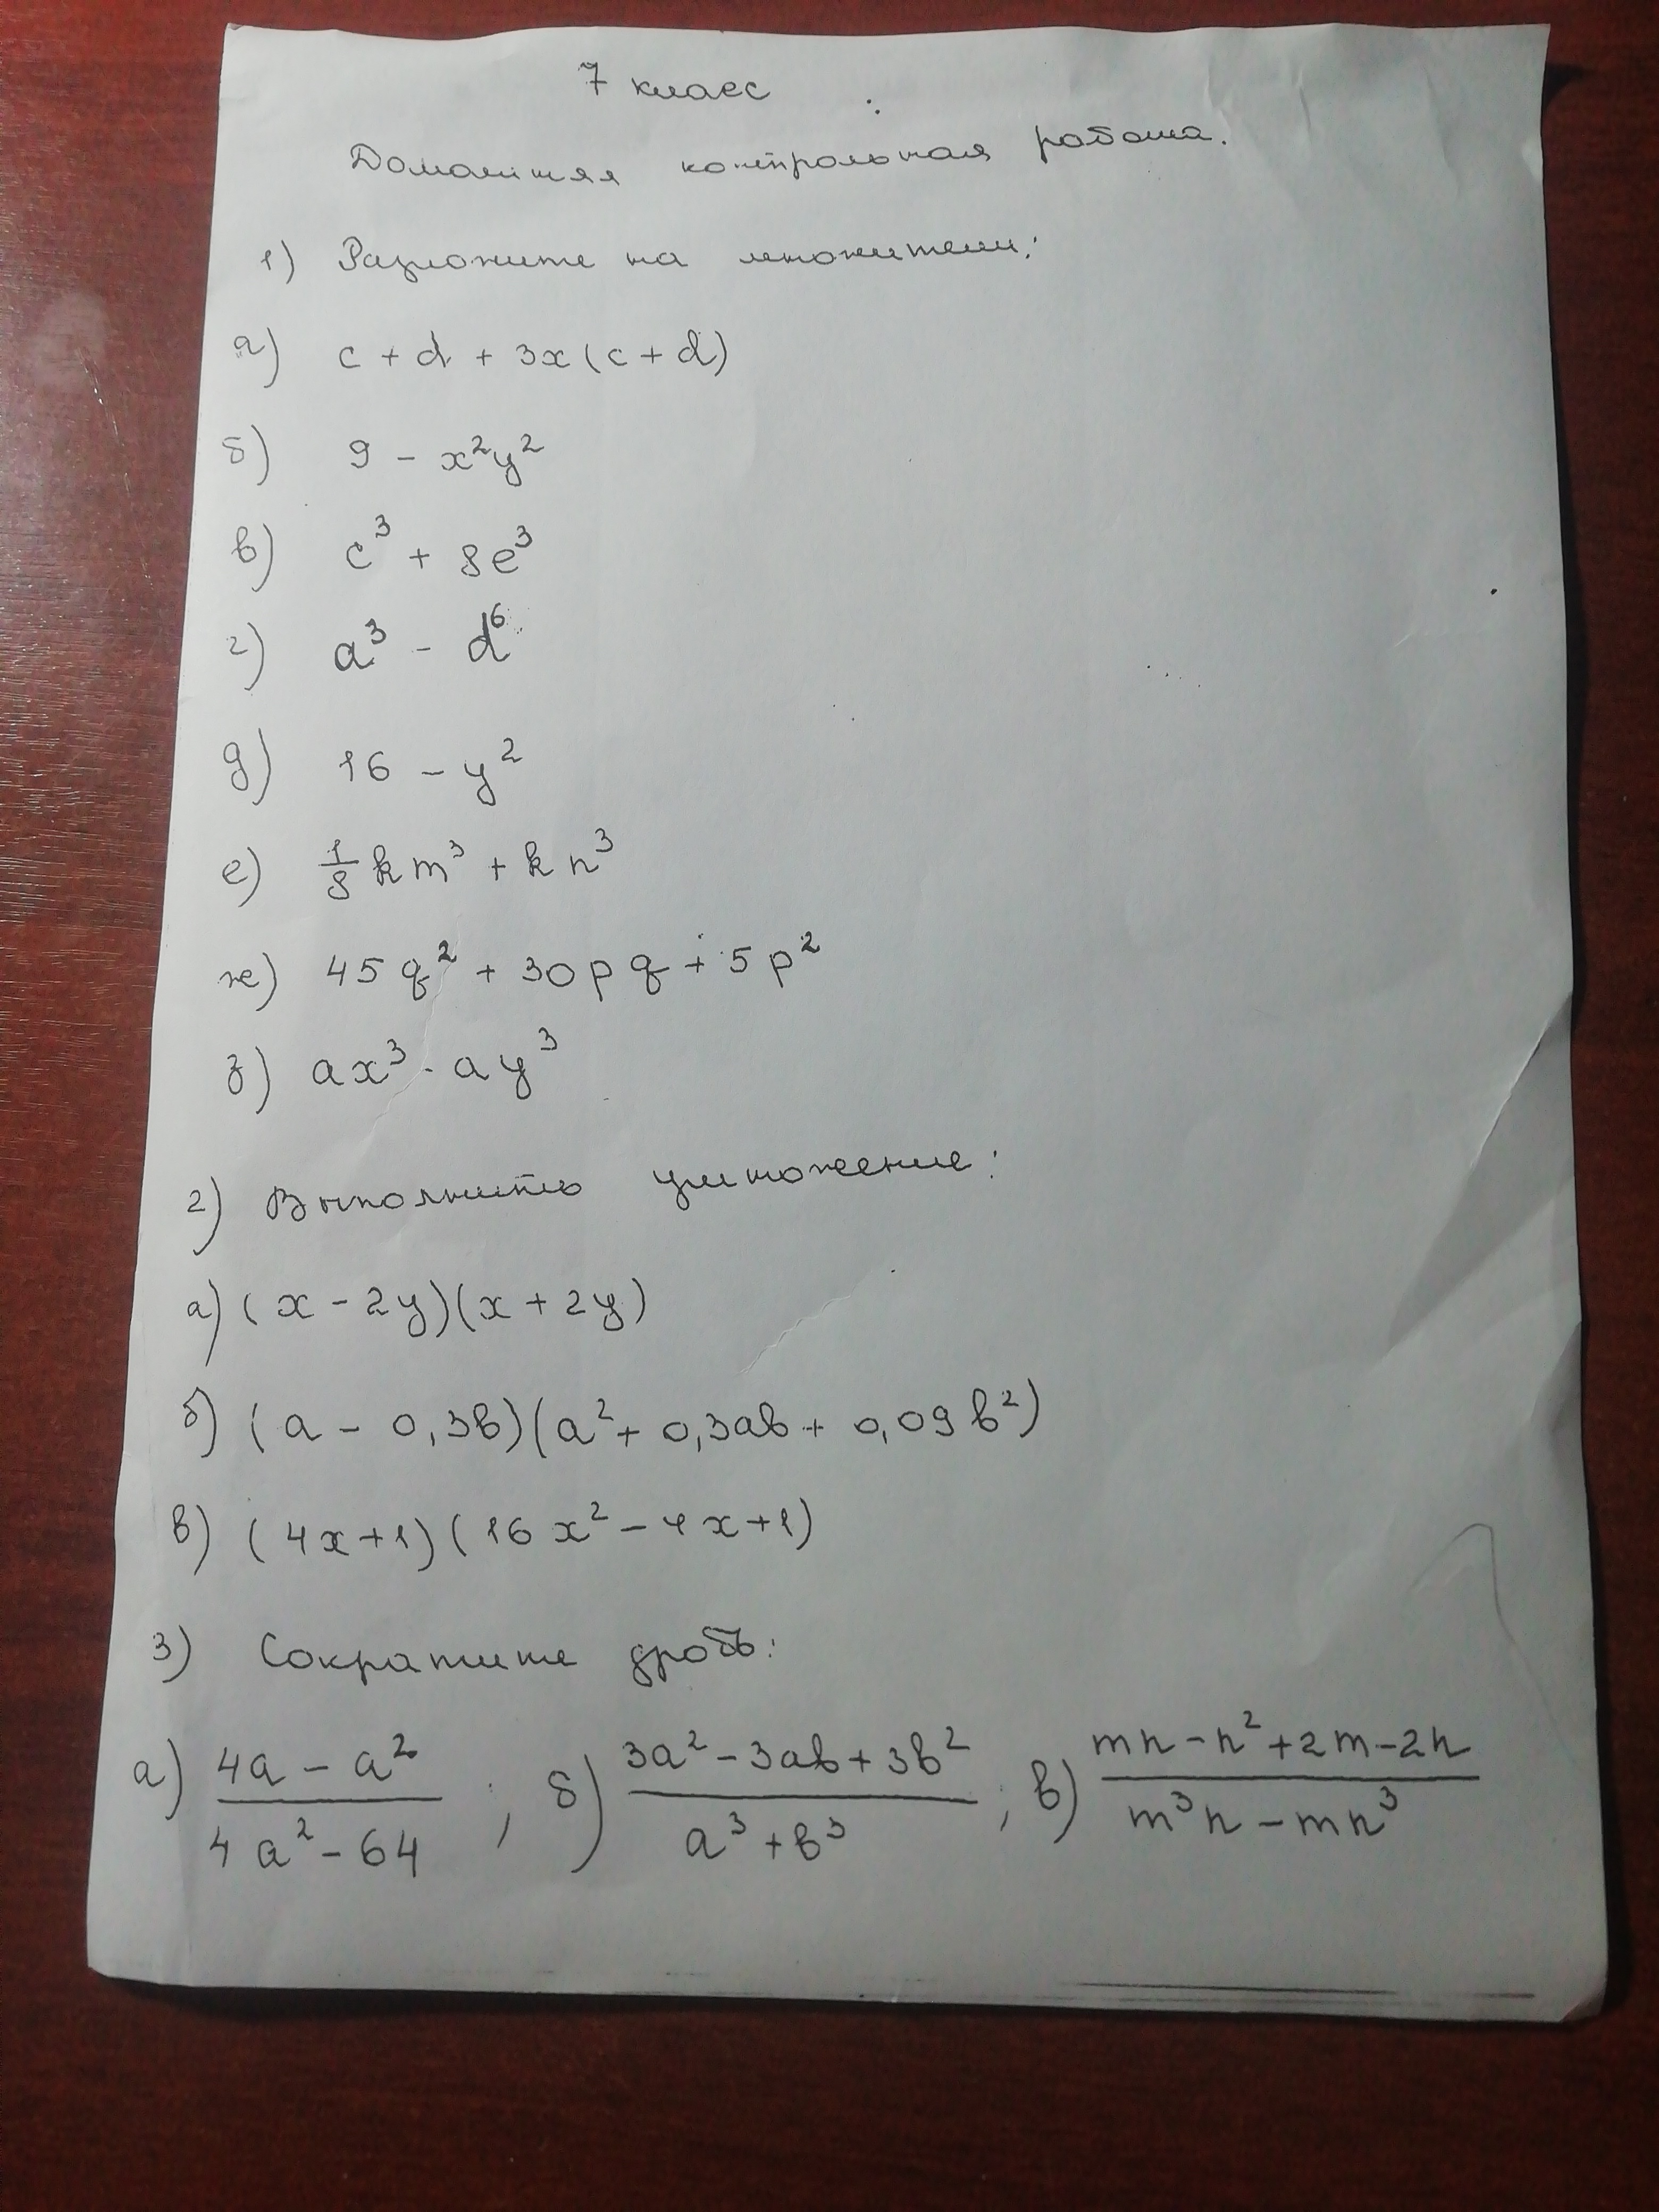 7 класс
Домашняя контрольная работа.
1) Разложите на множители:
а) c + d + 3x(c + d)
б) 9 - x²y²
в) c³ + 8e³
г) a³ - d⁶
д) 16 - y²
е) 1/8 km³ + kn³
ж) 45q² + 30pq + 5p²
з) ax³ - ay³
2) Выполнить умножение:
а) (x - 2y)(x + 2y)
б) (a - 0,3b)(a² + 0,3ab + 0,09b²)
в) (4x+1)(16x² - 4x+1)
3) Сократите дробь:
а) (4a - a²)/(4a² - 64) ; б) (3a² - 3ab + 3b²)/(a³ + b³) ; в) (mn - n² + 2m - 2n)/(m³n - mn³)